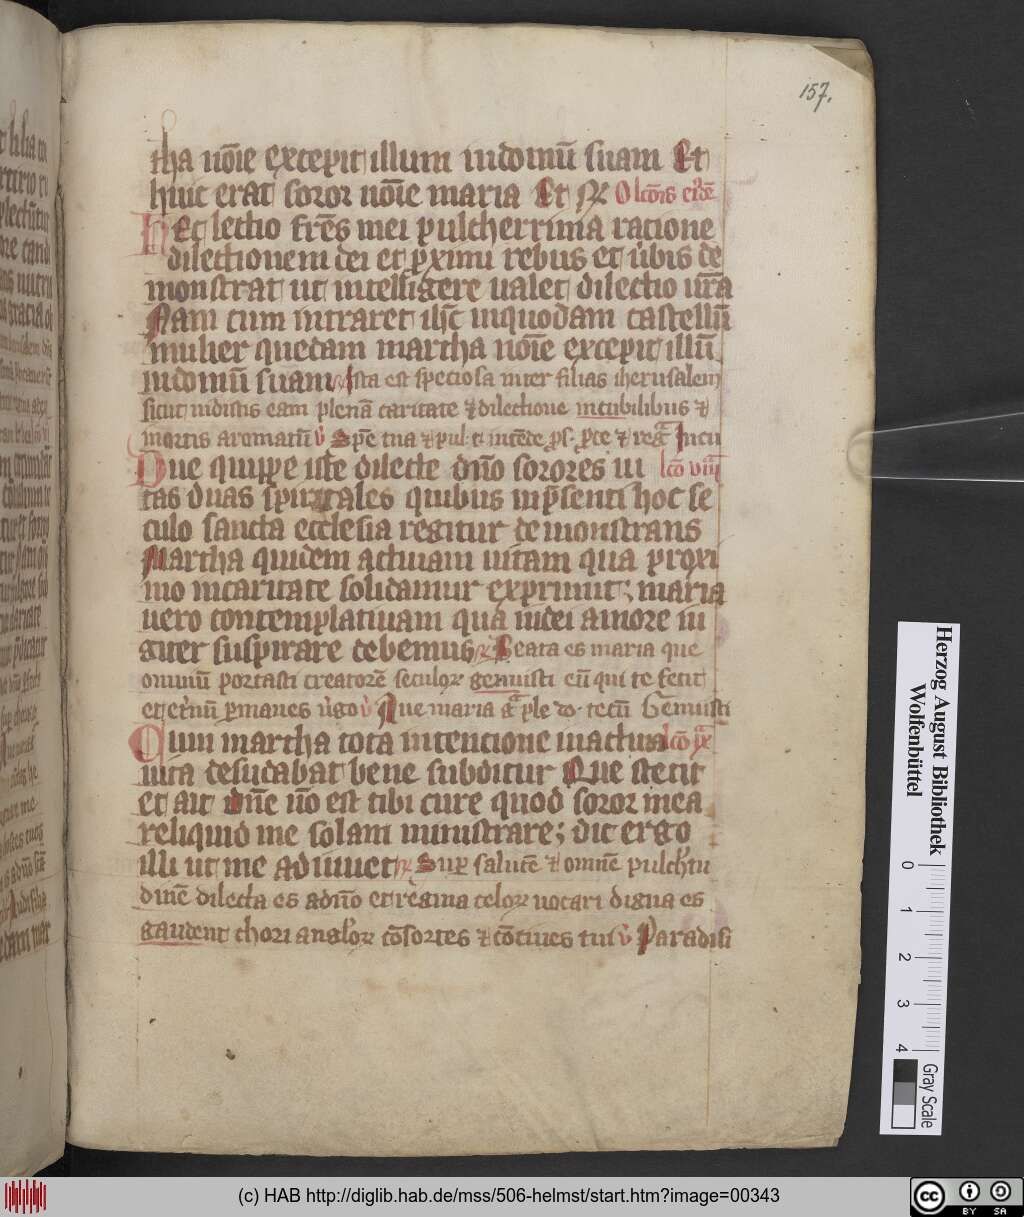 157.
tha nōıe excepit illum in domū suam Et
huic erat soror nōıe maria Et R̃ Olcōis eı9dē
Hec lectio fr̄es mei pulcherrima racione
dilectionem dei et ꝓximi rebus et ūbis de
monstrat ut intelligere ualet dilectio ur̄a
Nam cum intraret ihs̄c in quodam castellū
mulier quedam martha nōıe excepit illū
in domū suam R̃ Ista est speciosa inter filias iherusalem
sicut uidistis eam plenā caritate ⁊ dilectione in cubilibus ⁊
in ortis aromatū v̓ Spē tua ⁊ pul
Due quippe iste dilecte dn̄o sorores ui lc̄o viiiᵃ
tas duas spiritales quibus in p̄senti hoc se
culo sancta ecclesia regitur demonstrans
Martha quidem actiuam uitam qua proxi
mo in caritate solidamur exprimit; maria
uero contemplatiuam qua in dei amore iu
giter suspirare debemus R̃ Beata es maria que
omniū portasti creatorē seculoꝝ genuisti eū qui te fecit
et et̓nū ꝑmanes ūgo v̓ Aue maria gᵃ ple do tecū Genuisti
Cum martha tota intencione in actiua lc̄o ixᵃ
uita desudabat bene subditur Que stetit
et ait dn̄e nō est tibi cure quod soror mea
reliquid me solam ministrare; dic ergo
illi ut me adiuuet R̃ Suꝑ salutē ⁊ omnē pulch̓tu
dinē dilecta es a dn̄o et regina celoꝝ uocari digna es
gaudent chori angl̓oꝝ cōsortes ⁊ cōciues tui v̓ Paradisi
Herzog August Bibliothek
Wolfenbüttel
0 1 2 3 4
Gray Scale
(c) HAB http://diglib.hab.de/mss/506-helmst/start.htm?image=00343
cc BY SA